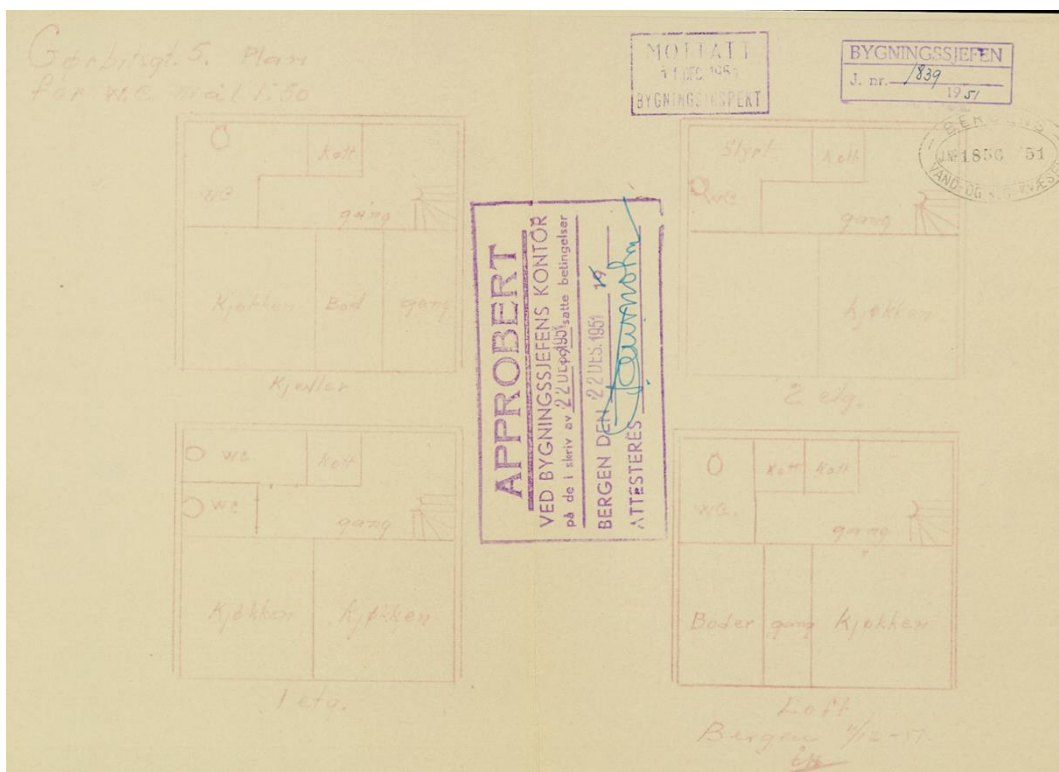 Gørbitsgt. 5. Plan
for W.C. mål 1:50
MOTTATT
11 DEC. 1951
BYGNINGSINSPEKT
BYGNINGSSJEFEN
J. nr. 1839
1951
BERGENS
J.№ 1856 51
VAND- OG
Kott
WC
gang
Kjøkken Bod gang
Kjeller
Styrt Kott
WC
gang
Kjøkken
2 etg.
APPROBERT
VED BYGNINGSSJEFENS KONTOR
på de i skriv av 22 DES. 1951 satte betingelser
BERGEN DEN 22 DES. 1951 19
ATTESTERES
WC Kott
WC
gang
Kjøkken Kjøkken
1 etg.
Kott Kott
WC.
gang
Boder gang Kjøkken
Loft
Bergen 11/12-51.